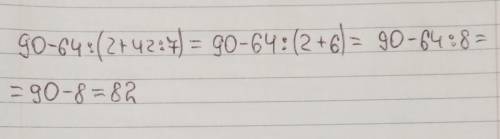 90-64:(2+42:7)= 90-64:(2+6)= 90-64:8=
=90-8=82